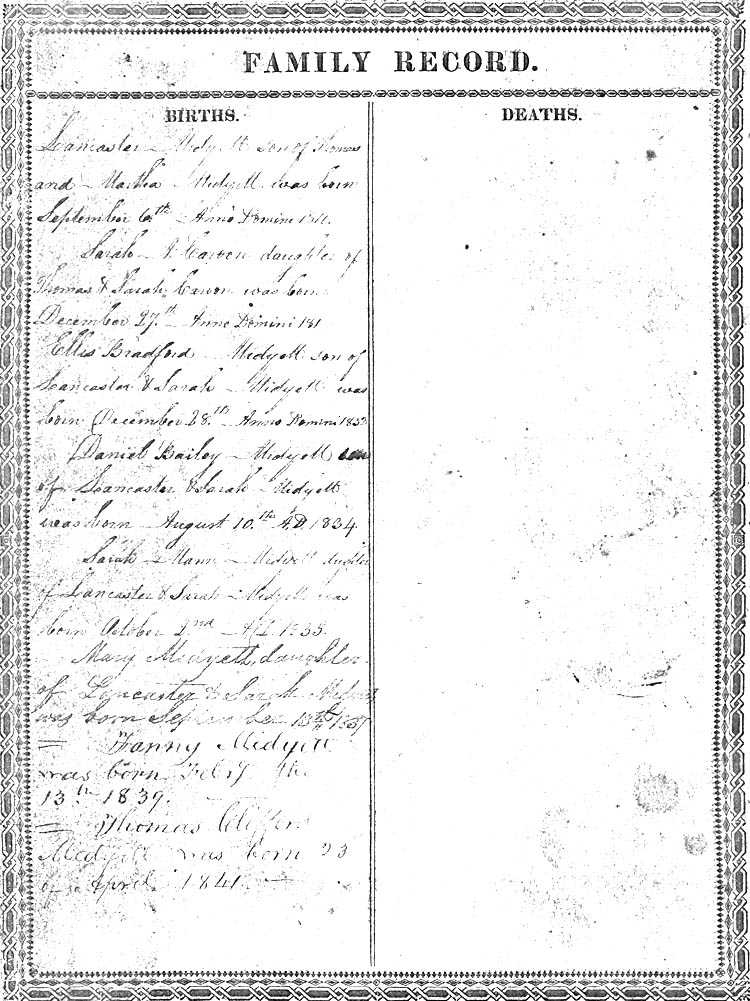 FAMILY RECORD.
BIRTHS.
Lancaster Midyett son of Thomas
and Martha Midyett was born
September 6th Anno Domini
Sarah daughter of
Thomas & Sarah was born
December 27th Anno Domini 181
Ellis Bradford Midyett son of
Lancaster & Sarah Midyett was
born December 28th Anno Domini
Daniel Bailey Midyett son
of Lancaster & Sarah Midyett
was born August 10th A.D. 1834
Sarah Mann Midyett
of Lancaster & Sarah Midyett was
born October 2nd A.D. 1835
Mary Midyett, daughter
of Lancaster & Sarah Midyett
was born September 13th 1837
= Fanny Midyett
was born Feb'y the
13th 1839.
= Thomas
Midyett was born 23
April 1841
DEATHS.